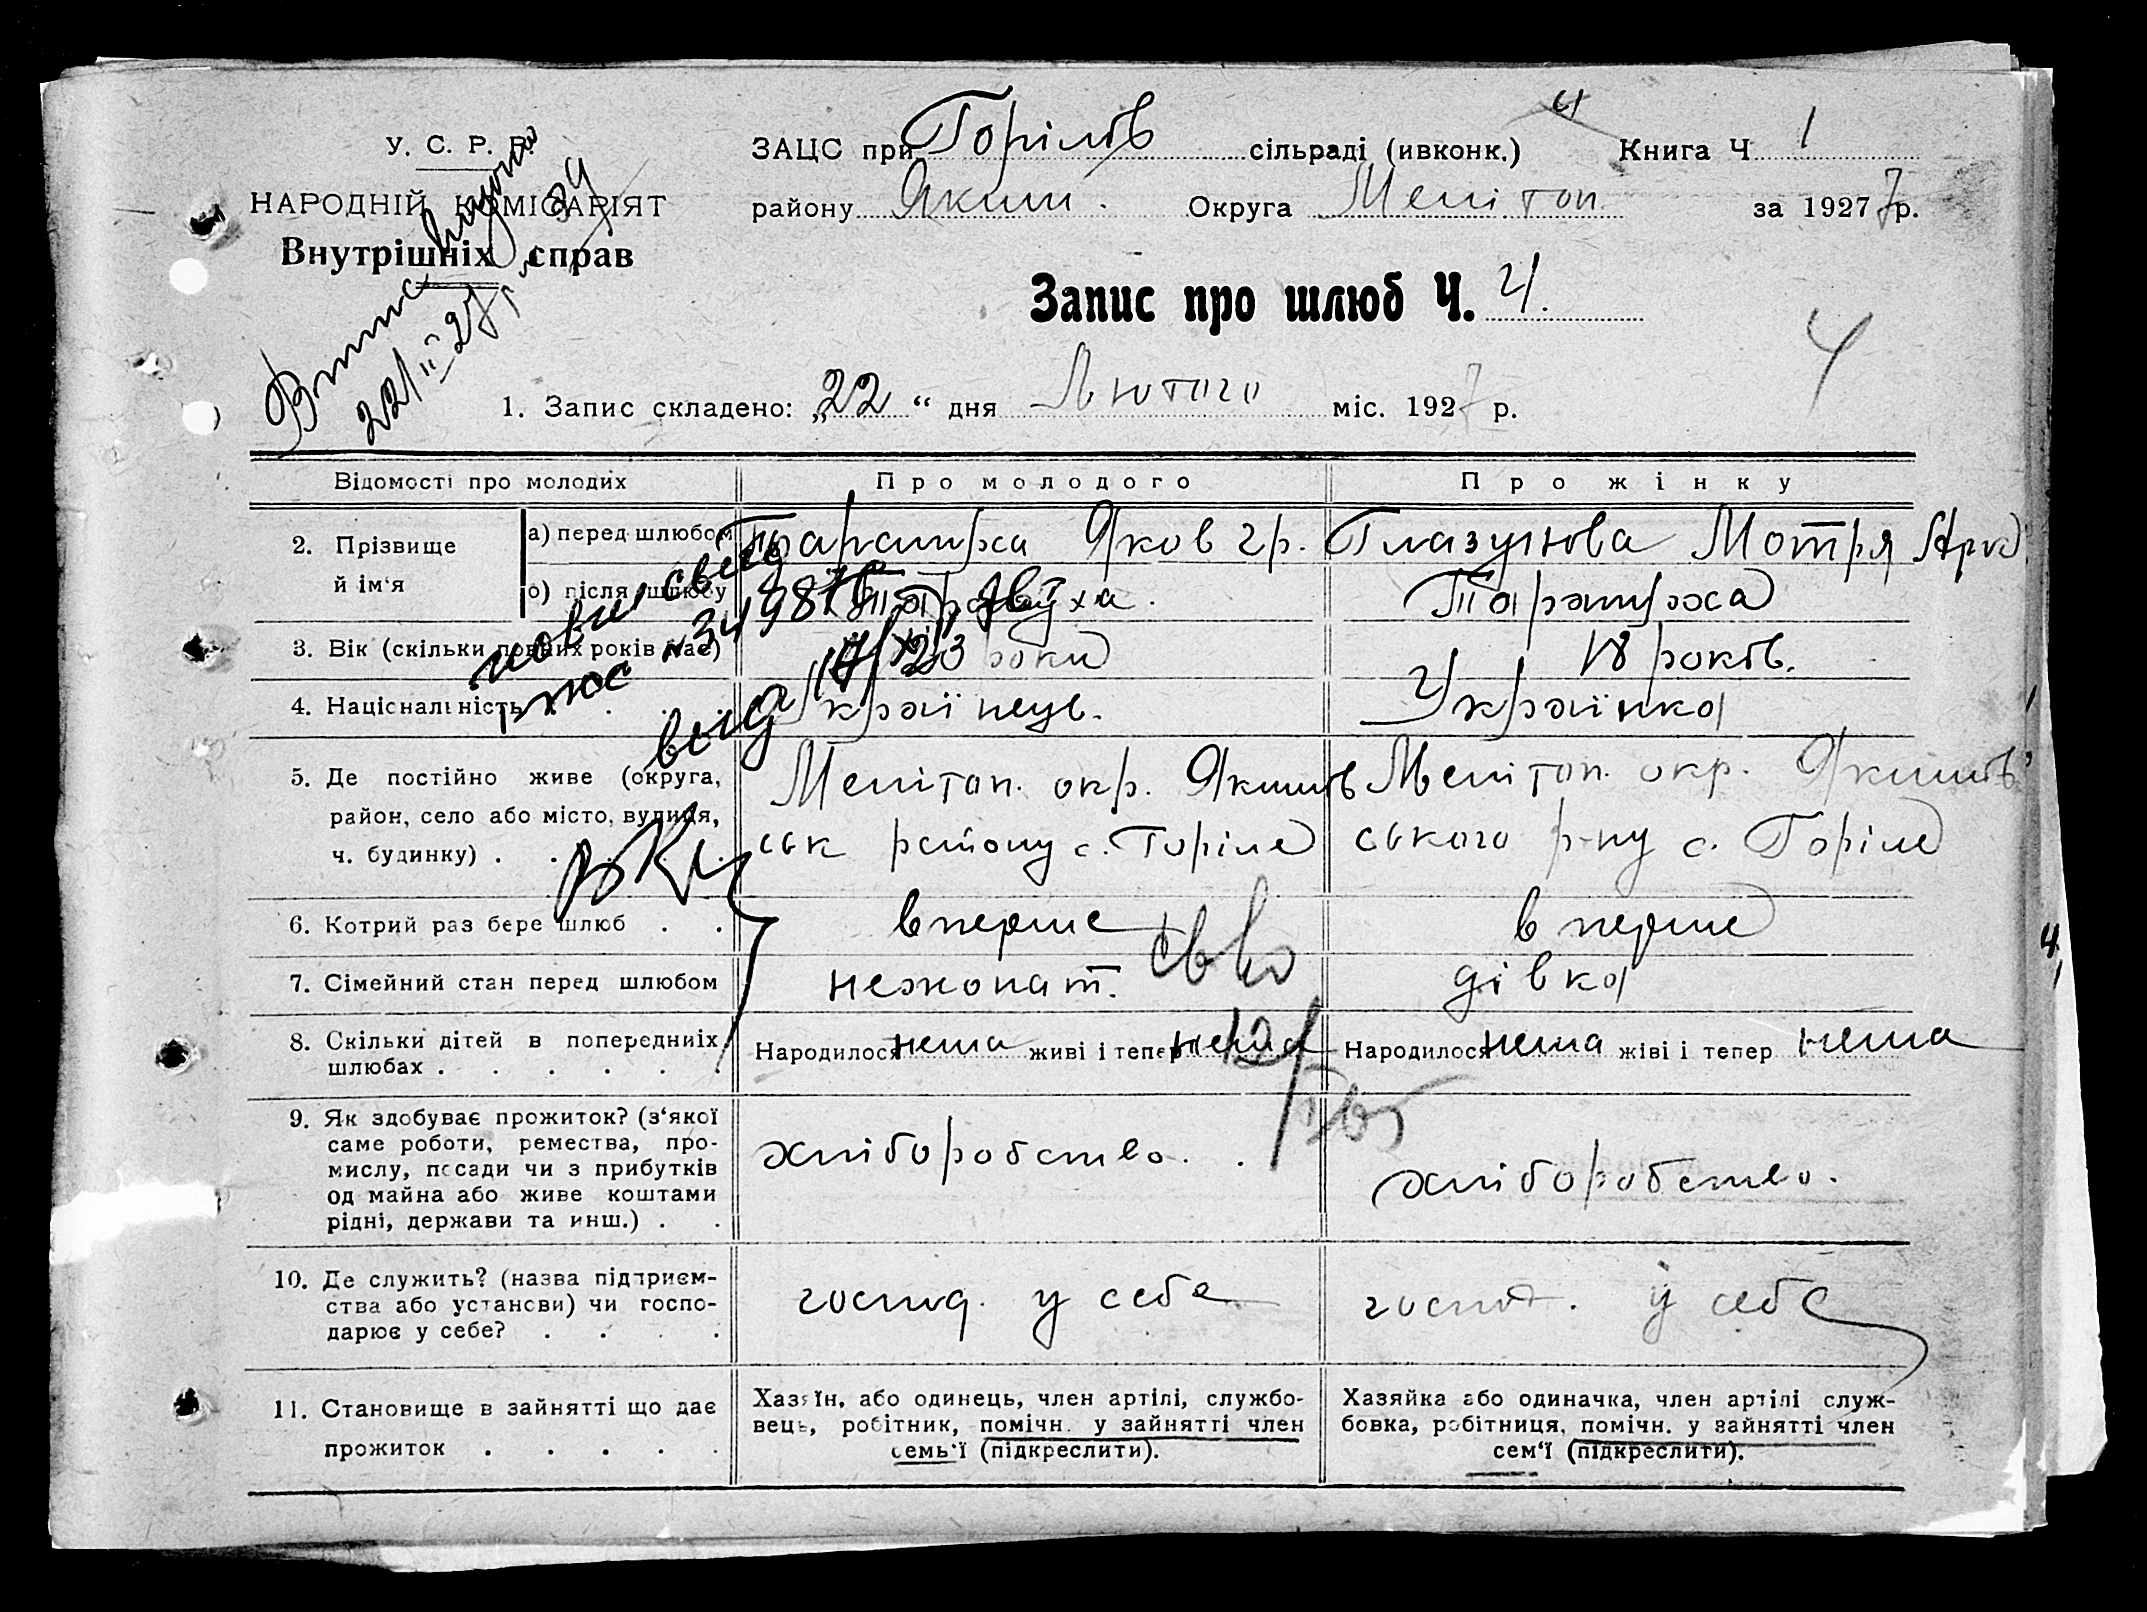 У. С. Р. Р.
НАРОДНІЙ КОМІСАРІЯТ
Внутрішніх справ
ЗАЦС при Горілів сільраді (ивконк.) Книга Ч 1
району Яким. Округа Мелітоп. за 1927 7 р.
Запис про шлюб Ч. 4.
4
1. Запис складено: „22“ дня Лютого міс. 1927 р.
Відомості про молодих Про молодого Про жінку
2. Прізвище й ім‘я
а) перед шлюбом Яков гр. Глазунова Мотря
б) після шлюбу
3. Вік (скільки повних років має) 23 роки 18 років.
4. Націснальність Українець. Українка
5. Де постійно живе (округа, Мелітоп. окр. Якимів Мелітоп. окр. Якимів
район, село або місто, вулиця, ськ району с. Горіле ського р-ну с. Горіле
ч. будинку)
6. Котрий раз бере шлюб вперше вперше
7. Сімейний стан перед шлюбом нежонат. дівка
8. Скільки дітей в попередніх Народилося нема живі і тепер нема Народилося нема жіві і тепер нема
шлюбах
9. Як здобуває прожиток? (з‘якої
саме роботи, ремества, про-
мислу, посади чи з прибутків хліборобство. хліборобство.
од майна або живе коштами
рідні, держави та инш.)
10. Де служить? (назва підприєм-
ства або установи) чи госпо- господ. у себе господ. у себе
дарює у себе?
11. Становище в зайнятті що дає
прожиток
Хазяїн, або одинець, член артілі, службо-
вець, робітник, помічн. у зайнятті член
семь‘ї (підкреслити).
Хазяйка або одиначка, член артілі служ-
бовка, робітниця, помічн. у зайнятті член
сем‘ї (підкреслити).